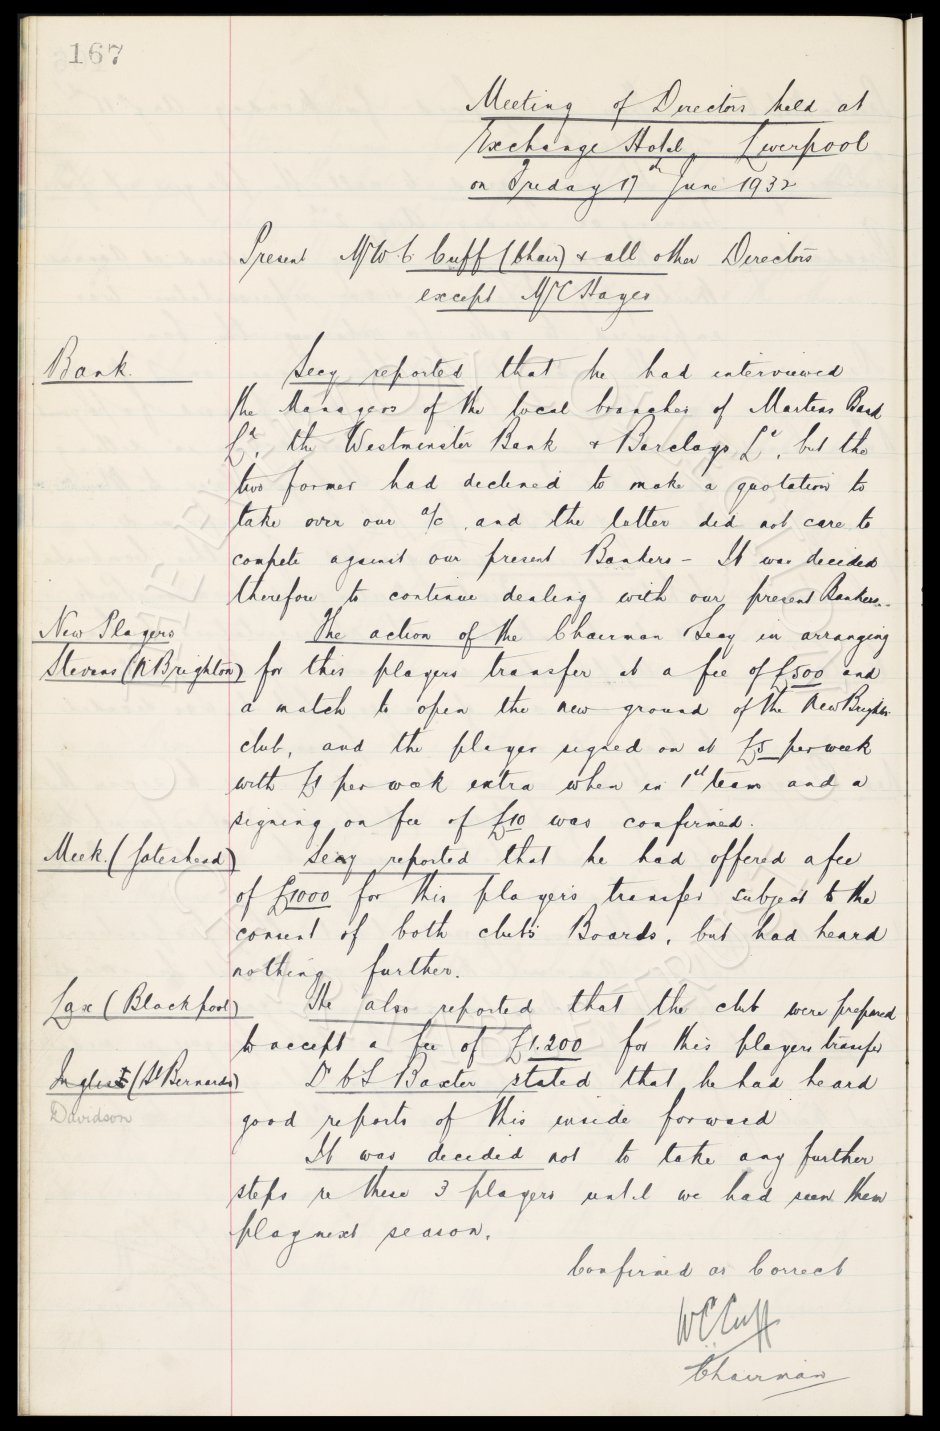 167
Meeting of Directors held at
Exchange Hotel, Liverpool
on Friday 17th June 1932
Present Mr W.C. Cuff (Chair) & all other Directors
except Mr C Hayes
Bank.
Secy reported that he had interviewed
the Managers of the local branches of Martins Bank
Ld, the Westminster Bank & Barclays Ld, but the
two former had declined to make a quotation to
take over our a/c, and the latter did not care to
compete against our present Bankers - It was decided
therefore to continue dealing with our present Bankers.
New Players
The action of the Chairman Secy in arranging
Stevens (N Brighton) for this players transfer at a fee of £500 and
a match to open the new ground of the New Brighton
club, and the player signed on at £5 per week
with £1 per week extra when in 1st team and a
signing on fee of £10 was confirmed.
Meek (Gateshead) Secy reported that he had offered a fee
of £1000 for this player's transfer subject to the
consent of both club's Boards, but had heard
nothing further.
Lax (Blackpool) He also reported that the club were prepared
to accept a fee of £1.200 for this players transfer
Inglis (St Bernards) Dr C S Baxter stated that he had heard
Davidson
good reports of this inside forward
It was decided not to take any further
steps re these 3 players until we had seen them
play next season.
Confirmed as Correct
W C Cuff
Chairman